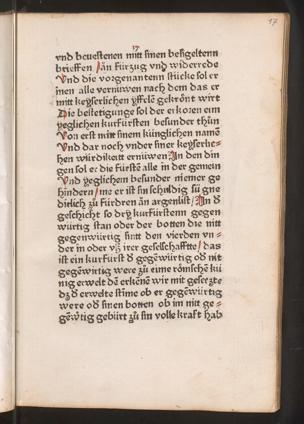 17
17
vnd beuestenen mitt sinen besigeltenn
brieffen / än fürzug vnd widerrede
Vnd die vorgenantenn stücke sol er
inen alle vernüwen nach dem das er
mitt keyserlichen yffelē gekrönt wirt
Die bestetigunge sol der erkoren eim
yeglichen kurfürsten besunder thůn
Von erst mitt sinem künglichen namē
Vnd dar noch vnder siner keyserlic⸗
hen würdikatt ernüwen In den din
gen sol er die fürstē alle in der gemein
Vnd yeglichen besunder niemer ge
hindern / me er ist sin schuldig zů gne
dielich zů fürdren än argenlist / In d
geschicht so dry kurfürstenn gegen
würtig stan oder der botten die nitt
gegenwürtig sintt den vierden vn⸗
der in oder vß irer geselschafftte / das
ist ein kurfürst d gegēwürtig oď nit
gegēwürtig were zů eime römschē kü
nig erwelt dē erkenē wir mit gesetzte
dz ď erwelte stīme ob er gegēwürtig
were oď sinen botten ob im nitt ge⸗
gēwrtig gebürt zů sin volle kraft hab